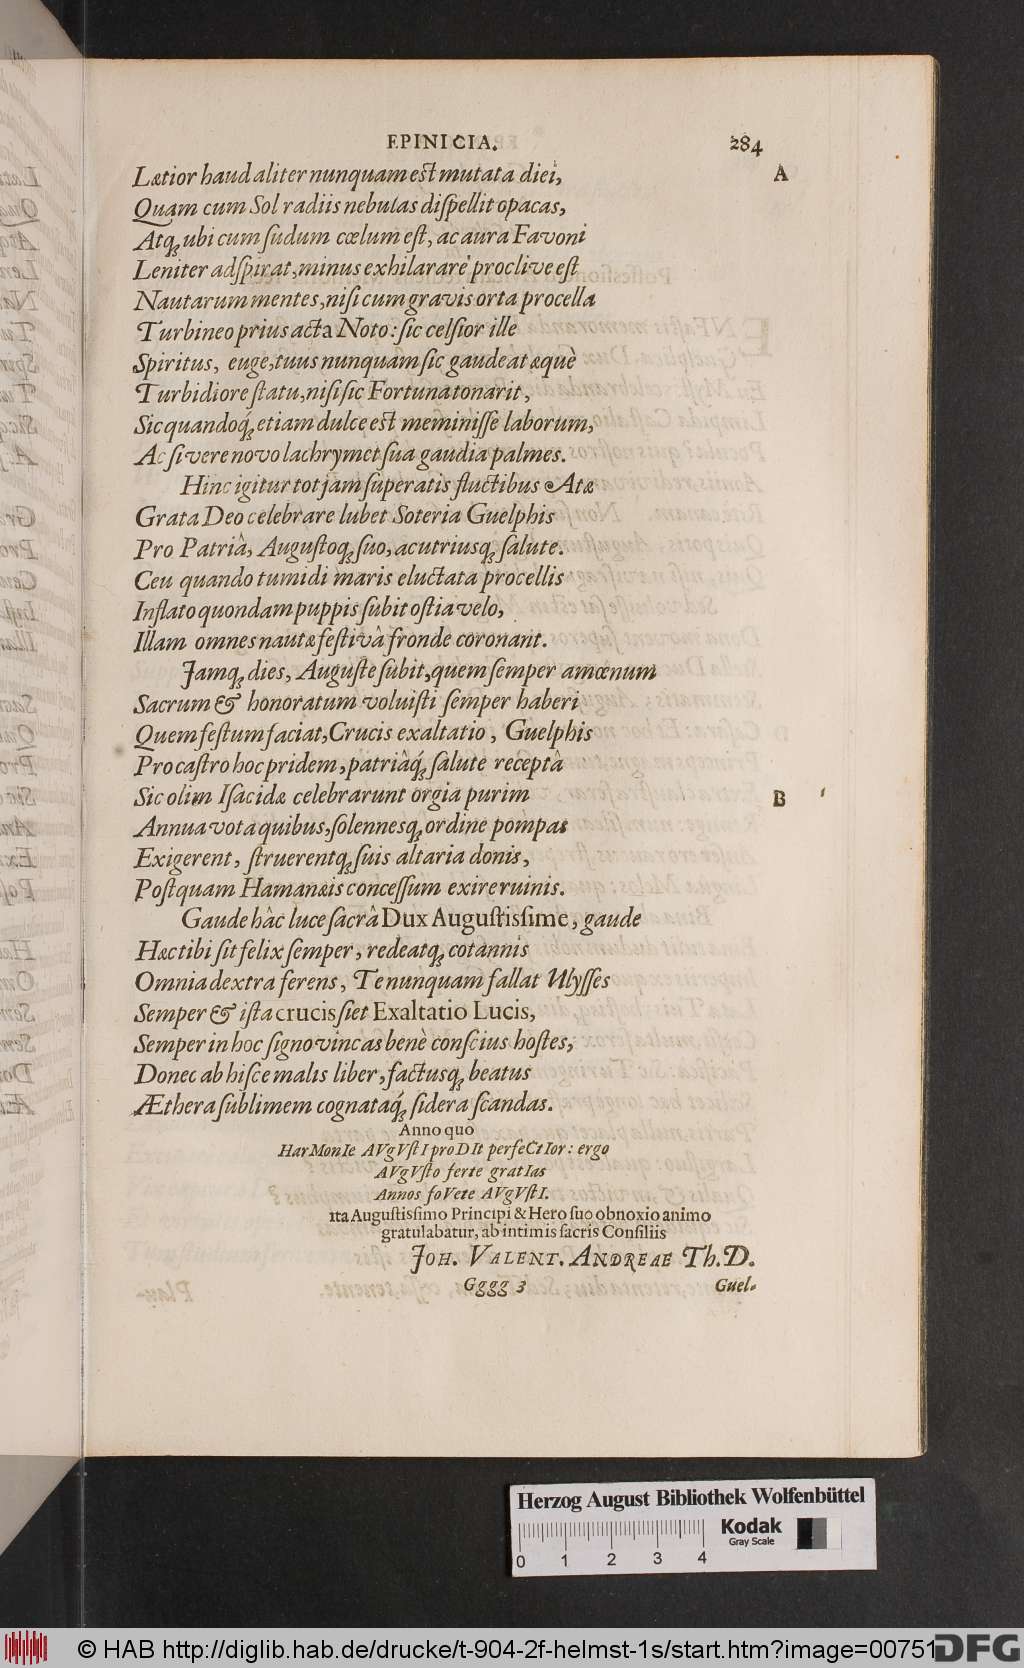 EPINICIA. 284
Lætior haud aliter nunquam est mutata diei, A
Quam cum Sol radiis nebulas diſpellit opacas,
Atq; ubi cum ſudum cœlum eſt, ac aura Favoni
Leniter adſpirat, minus exhilararè proclive eſt
Nautarum mentes, niſi cum gravis orta procella
Turbine o prius acta Noto: ſic celſior ille
Spiritus, euge, tuus nunquam ſic gaudeat æquè
Turbidiore ſtatu, niſi ſic Fortuna tonarit,
Sic quandoq́; etiam dulce est meminiſſe laborum,
Ac ſi vere novo lachrymet ſua gaudia palmes.
Hinc igitur tot jam ſuperatis fluctibus Atæ
Grata Deo celebrare lubet Soteria Guelphis
Pro Patriâ, Auguſtoq; ſuo, ac utriusq; ſalute.
Ceu quando tumidi maris eluctata procellis
Inflato quondam puppis ſubit oſtia velo,
Illam omnes nautæ feſtivâ fronde coronant.
Jamq; dies, Auguſte ſubit, quem ſemper amœnum
Sacrum & honoratum voluiſti ſemper haberi
Quem feſtum faciat, Crucis exaltatio, Guelphis
Pro caſtro hoc pridem, patriâq́; ſalute receptâ
Sic olim Iſacidæ celebrarunt orgia purim B
Annua vota quibus, ſolennesq; ordine pompas
Exigerent, ſtruerentq; ſuis altaria donis,
Poſtquam Hamanæis conceſſum exire ruinis.
Gaude hâc luce ſacrâ Dux Auguſtisſime, gaude
Hæc tibi ſit felix ſemper, redeatq; cotannis
Omnia dextra ferens, Te nunquam fallat Ulyſſes
Semper & iſta crucis fiet Exaltatio Lucis,
Semper in hoc ſigno vincas benè conſcius hoſtes,
Donec ab hiſce malis liber, factusq; beatus
Æthera ſublimem cognataq́; ſidera ſcandas.
Anno quo
HarMonIe AVgVſtI proDIt perfeCtIor: ergo
AVgVſto ferte gratIas
Annos foVete AVgVſtI.
ita Auguſtisſimo Principi & Hero ſuo obnoxio animo
gratulabatur, ab intimis ſacris Conſiliis
JOH. VALENT. ANDREAE Th. D.
Gggg 3 Guel-
Herzog August Bibliothek Wolfenbüttel
0 1 2 3 4
Kodak
Gray Scale
© HAB http://diglib.hab.de/drucke/t-904-2f-helmst-1s/start.htm?image=00751
DFG